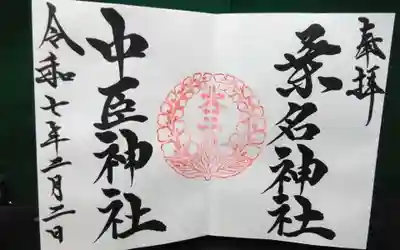 奉拝
桑名神社
中臣神社
令和七年二月二日